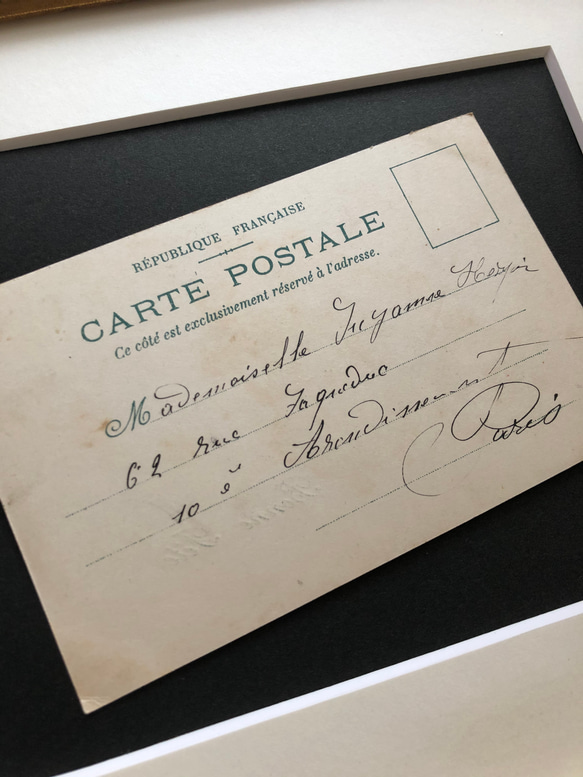 RÉPUBLIQUE FRANÇAISE
CARTE POSTALE
Ce côté est exclusivement réservé à l'adresse.
Mademoiselle
62 rue
10 è Arondissement
Paris